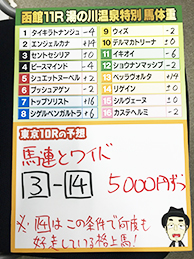 函館11R 湯の川温泉特別 馬体重
1 タイキラトナンジュ -4
2 エンジェルカナ +4
3 セントセシリア ±0
4 ピースマインド -4
5 シュエットヌーベル +2
6 プッシュアゲン
7 トップソリスト +16
8 シゲルペンガルトラ +6
9 ウィズ -2
10 デルマカトリーナ ±0
11 イキオイ -6
12 ショウナンマップ -2
13 ヘッラヴォルタ +14
14 リゲイン
15 シルヴェーヌ ±0
16 カステヘルミ -2
東京10Rの予想
馬連とワイド
3-14 5000円ずつ
※14はこの条件で何度も
好走している格上馬!